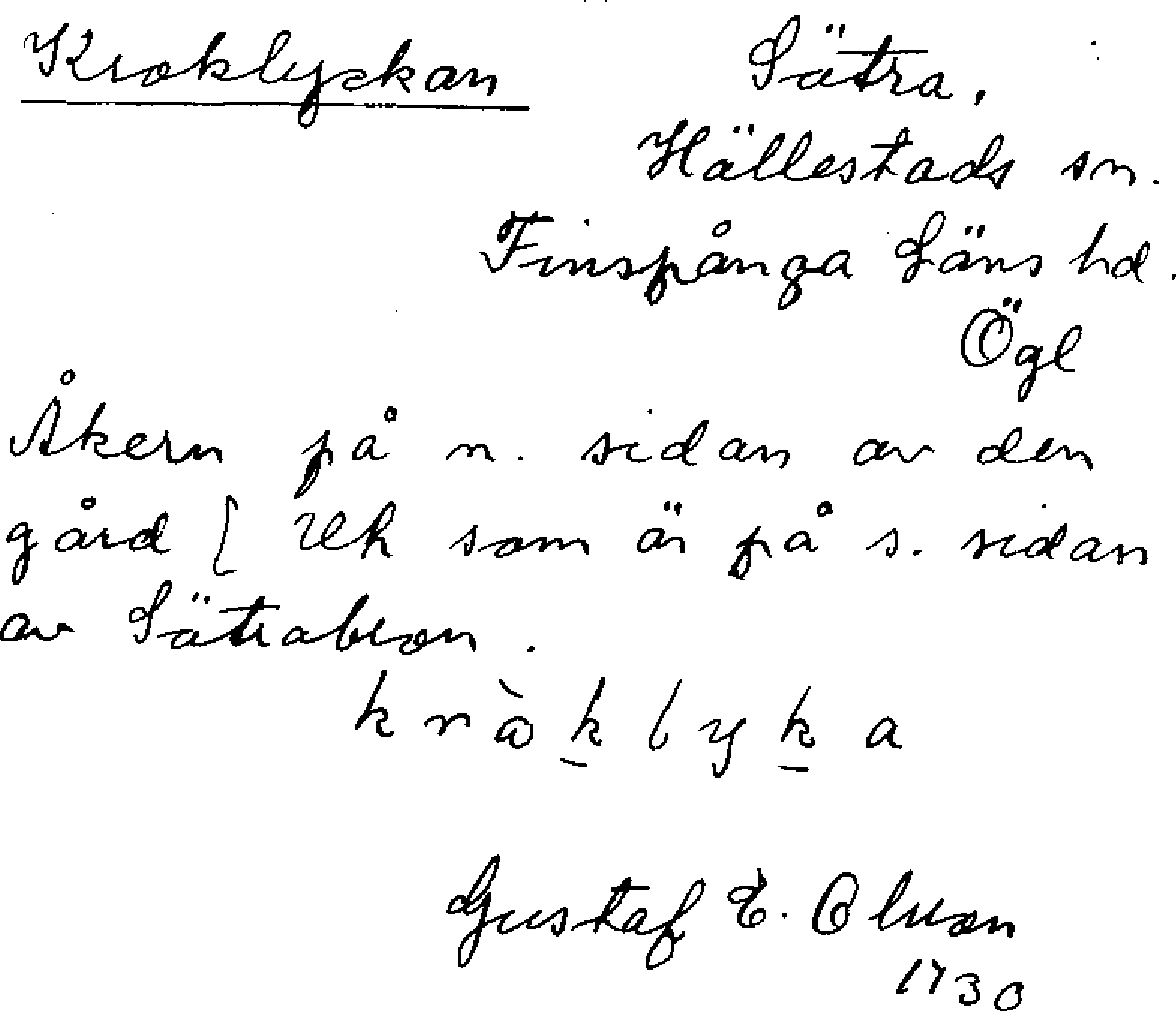 Kroklyckan
Sätra.
Hällestads sn.
Finspånga Läns hd.
Ögl
Åkern på n. sidan av den
gård [ som är på s. sidan
av Sätrabron.
kràklyka
Gustaf E. Olson
1930